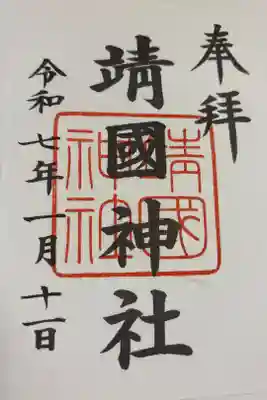 奉拝
靖國神社
靖國神社
令和七年一月十一日